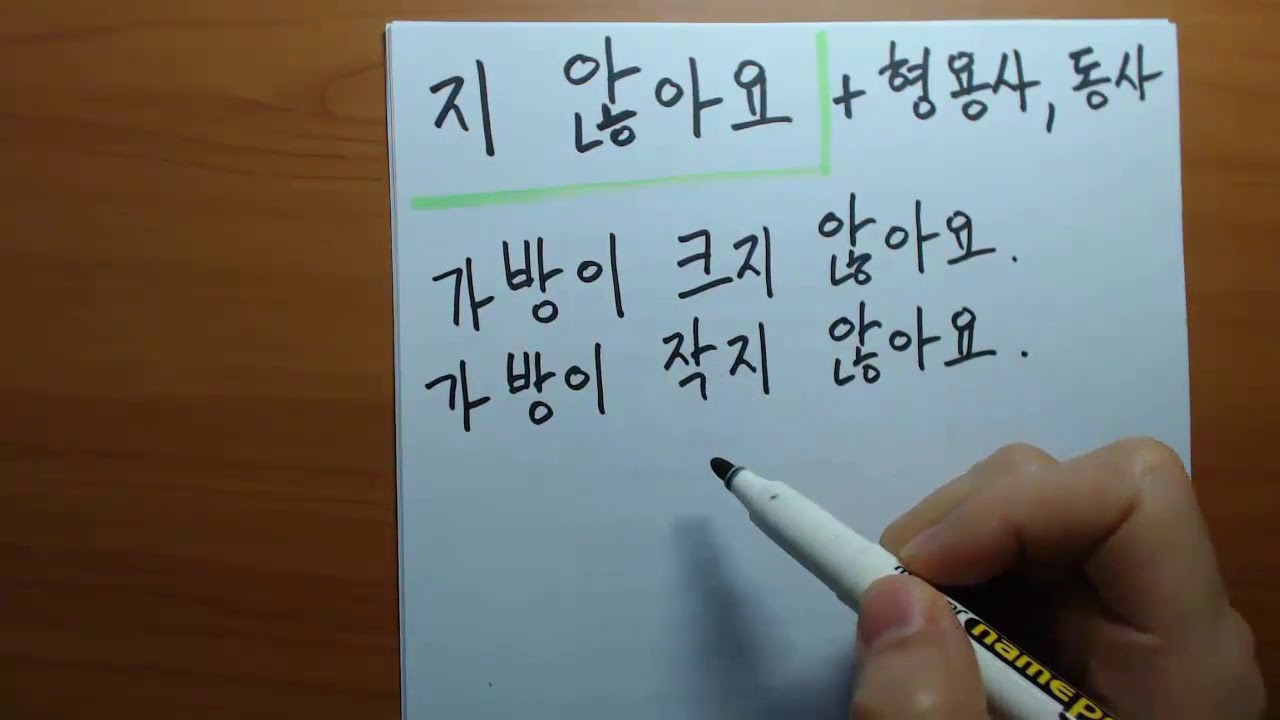 지 않아요 + 형용사, 동사
가방이 크지 않아요.
가방이 작지 않아요.
name P